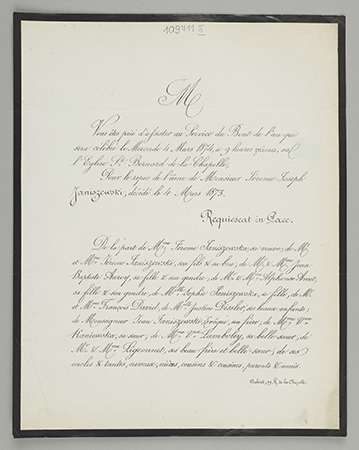 109711 II
M
Vous êtes prié d'assister au Service du Bout de l'an qui
sera célébré le Mercredi 4 Mars 1874, à 9 heures précises, en
l'Eglise St Bernard de la Chapelle,
Pour le repos de l'âme de Monsieur Jérome Joseph
Janiszewski, décédé le 4 Mars 1873.
Requiescat in Pace.
De la part de Mme Jérome Janiszewska, sa veuve; de Mr
et Mme Jérome Janiszewski, son fils & sa bru; de Mr & Mme Jean
Baptiste Auroy, sa fille & son gendre; de Mr & Mme Alphonse
sa fille & son gendre; de Mlle Sophie Janiszewska, sa fille; de Mr
et Mme François David, de Mlle Justine ses beaux enfants;
de Monseigneur Jean Janiszewski, Evêque, son frère; de Mme Vve
Kaniewska, sa sœur; de Mme Vve Lamboley, sa belle sœur; de
Mr & Mme Ligeonnet, ses beau frère et belle sœur; de ses
oncles & tantes, neveux, nièces, cousins & cousines, parents & amis.
R. de la Chapelle